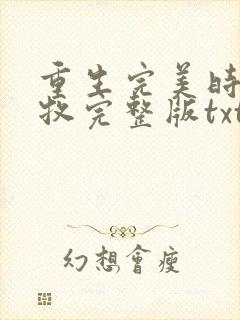 重生完美時
牧完整版txt
幻想會瘦